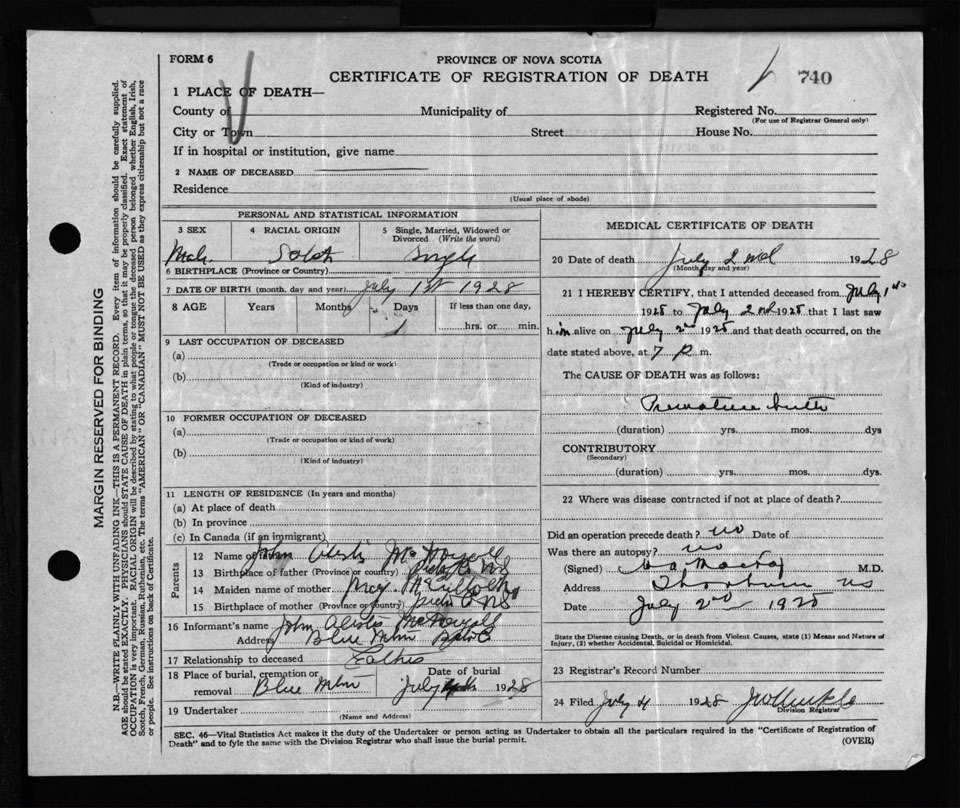 FORM 6
PROVINCE OF NOVA SCOTIA
CERTIFICATE OF REGISTRATION OF DEATH
740
1 PLACE OF DEATH—
County of Municipality of Registered No.
(For use of Registrar General only)
City or Town Street House No.
If in hospital or institution, give name
2 NAME OF DECEASED
Residence
(Usual place of abode)
PERSONAL AND STATISTICAL INFORMATION
3 SEX 4 RACIAL ORIGIN 5 Single, Married, Widowed or Divorced (Write the word)
Male Scotch Single
6 BIRTHPLACE (Province or Country)
7 DATE OF BIRTH (month, day and year) July 1st 1928
8 AGE Years Months Days If less than one day,
1 hrs. or min.
9 LAST OCCUPATION OF DECEASED
(a)
(Trade or occupation or kind or work)
(b)
(Kind of industry)
10 FORMER OCCUPATION OF DECEASED
(a)
(Trade or occupation or kind of work)
(b)
(Kind of industry)
11 LENGTH OF RESIDENCE (In years and months)
(a) At place of death
(b) In province
(c) In Canada (if an immigrant)
Parents
12 Name of father John
13 Birthplace of father (Province or country) NS
14 Maiden name of mother
15 Birthplace of mother (Province or country) NS
16 Informant's name John
Address Blue Mtn
17 Relationship to deceased Father
18 Place of burial, cremation or removal Blue Mtn Date of burial July 1928
19 Undertaker
(Name and Address)
MEDICAL CERTIFICATE OF DEATH
20 Date of death July 2nd 1928
(Month day and year)
21 I HEREBY CERTIFY, that I attended deceased from July 1st
1928 to July 2nd 1928 that I last saw
him alive on July 2nd 1928 and that death occurred, on the
date stated above, at 7 P. m.
The CAUSE OF DEATH was as follows:
Premature birth
(duration) yrs. mos. dys
CONTRIBUTORY
(Secondary)
(duration) yrs. mos. dys.
22 Where was disease contracted if not at place of death?
Did an operation precede death? no Date of
Was there an autopsy? no
(Signed) M.D.
Address Thorburn NS
Date July 2nd 1928
State the Disease causing Death, or in death from Violent Causes, state (1) Means and Nature of
Injury, (2) whether Accidental, Suicidal or Homicidal.
23 Registrar's Record Number
24 Filed July 4 1928
Division Registrar
SEC. 46—Vital Statistics Act makes it the duty of the Undertaker or person acting as Undertaker to obtain all the particulars required in the "Certificate of Registration of
Death" and to fyle the same with the Division Registrar who shall issue the burial permit.
(OVER)
MARGIN RESERVED FOR BINDING
N.B.—WRITE PLAINLY WITH UNFADING INK—THIS IS A PERMANENT RECORD. Every item of information should be carefully supplied.
AGE should be stated EXACTLY. PHYSICIANS should STATE CAUSE OF DEATH in plain terms, so that it may be properly classified. Exact statement of
OCCUPATION is very important. RACIAL ORIGIN will be described by stating to what people or tongue the deceased person belonged whether English, Irish,
Scotch, French, German, Russian, Ruthenian, etc. The terms "AMERICAN" OR "CANADIAN" MUST NOT BE USED as they express citizenship but not a race
or people. See instructions on back of Certificate.